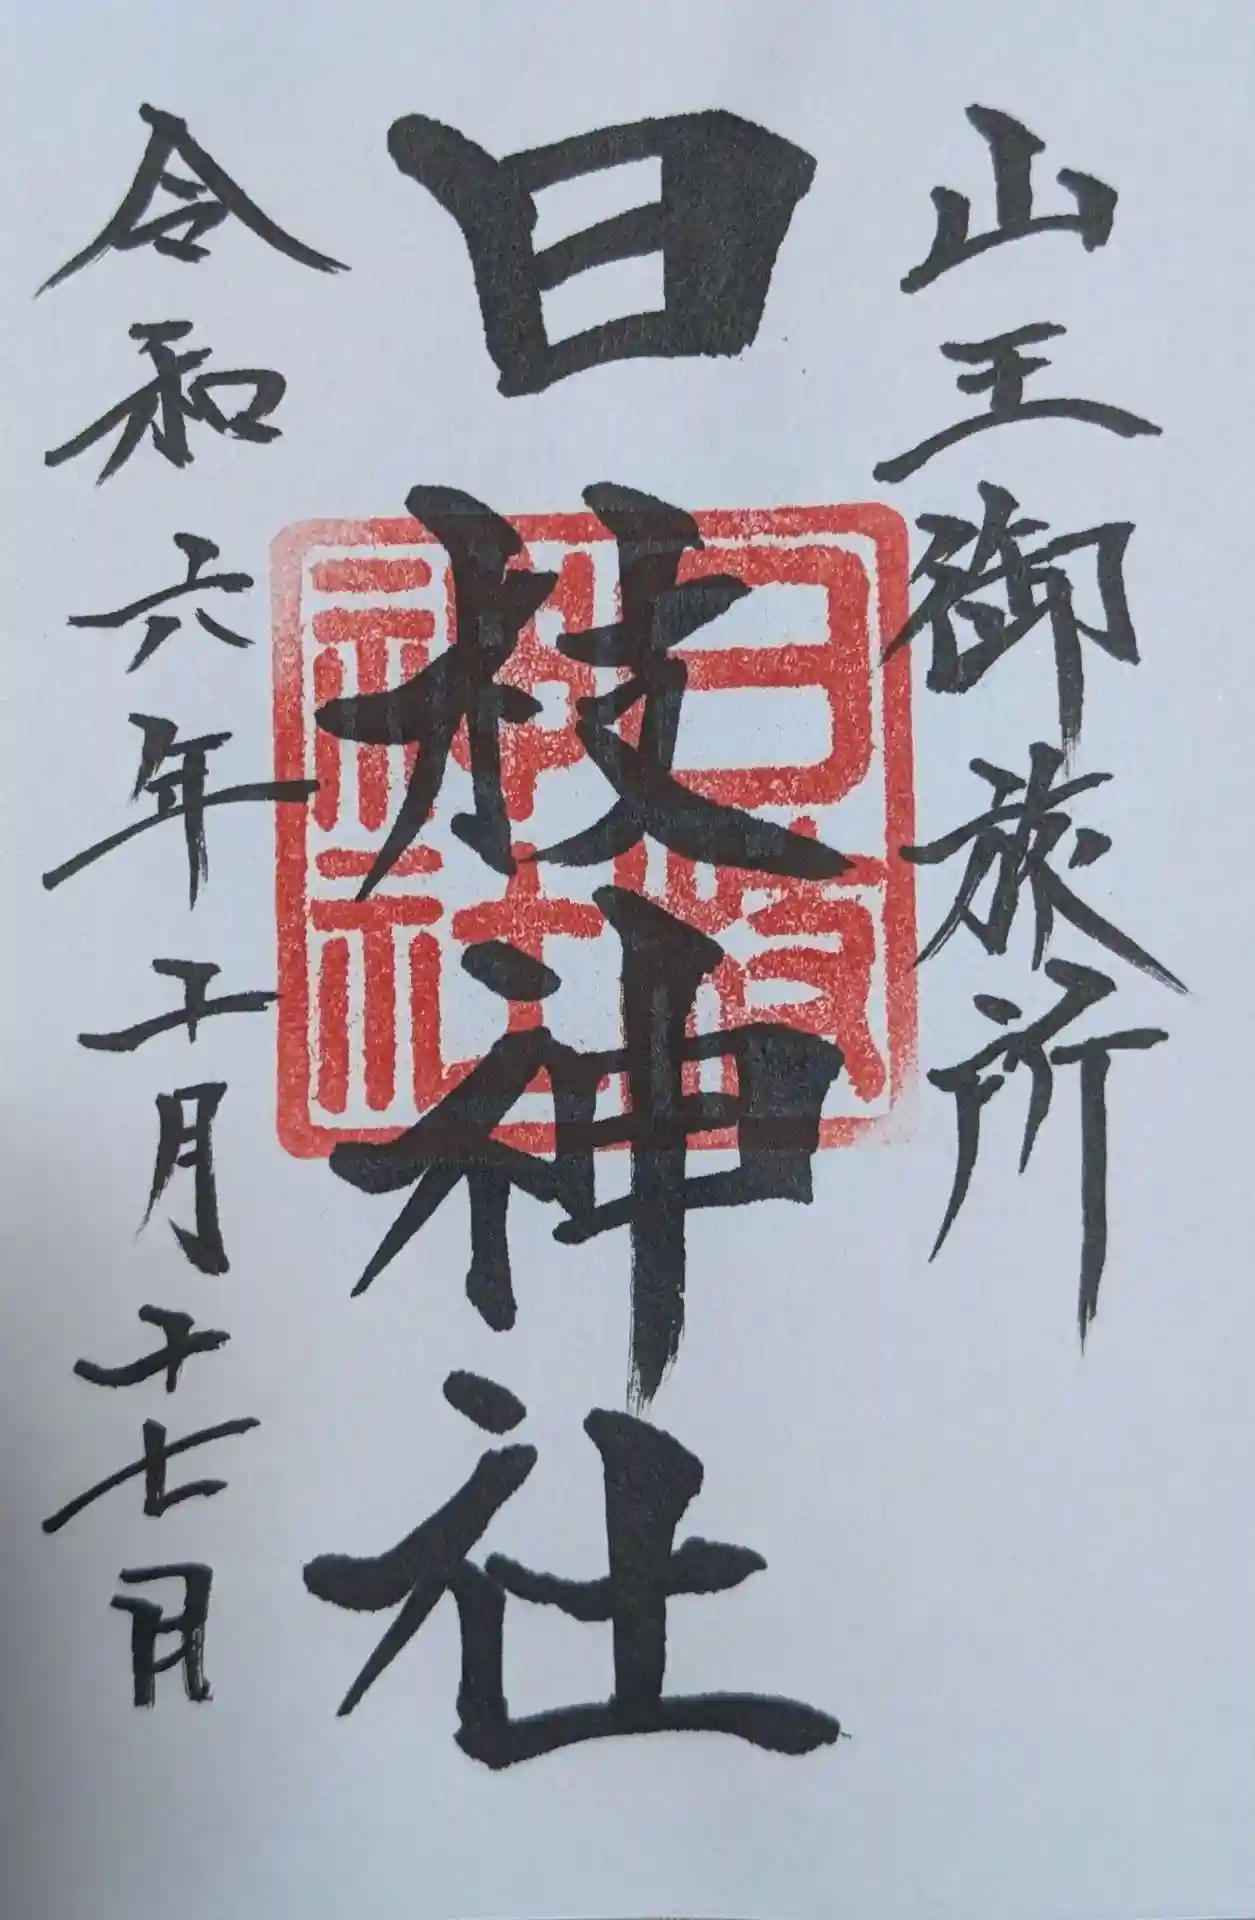 山王御旅所
日枝神社
令和六年十一月十七日
日枝
神社